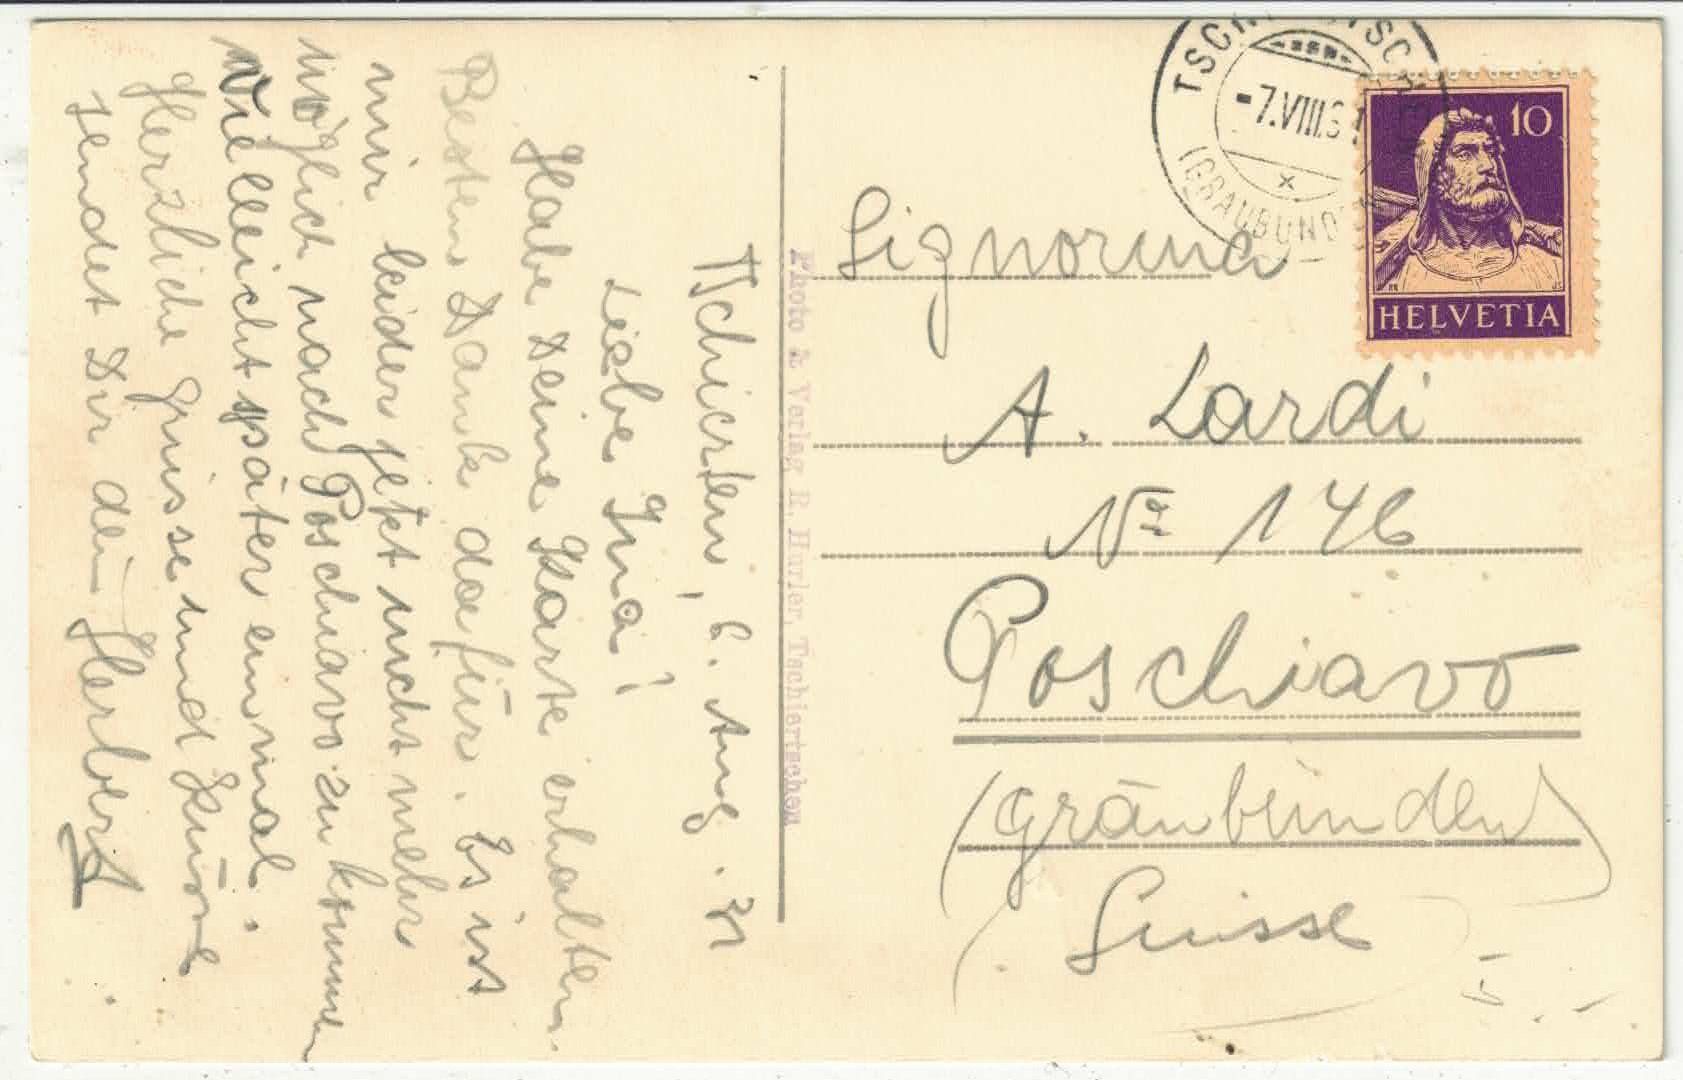 Tschierten, 6. Aug. 31
Liebe Ina!
Habe Deine Karte erhalten.
Besten Dank dafür. Es ist
mir leider jetzt nicht mehr
möglich nach Poschiavo zu kommen
Vielleicht später einmal.
Herzliche Grüsse und Küsse
sendet Dir dein Herbert
Photo & Verlag R. Hurler, Tschiertschen
Signorina
A. Lardi
No 146
Poschiavo
(Graubünden)
Suisse
-7.VIII.31
(GRAUBÜNDEN)
10
HELVETIA